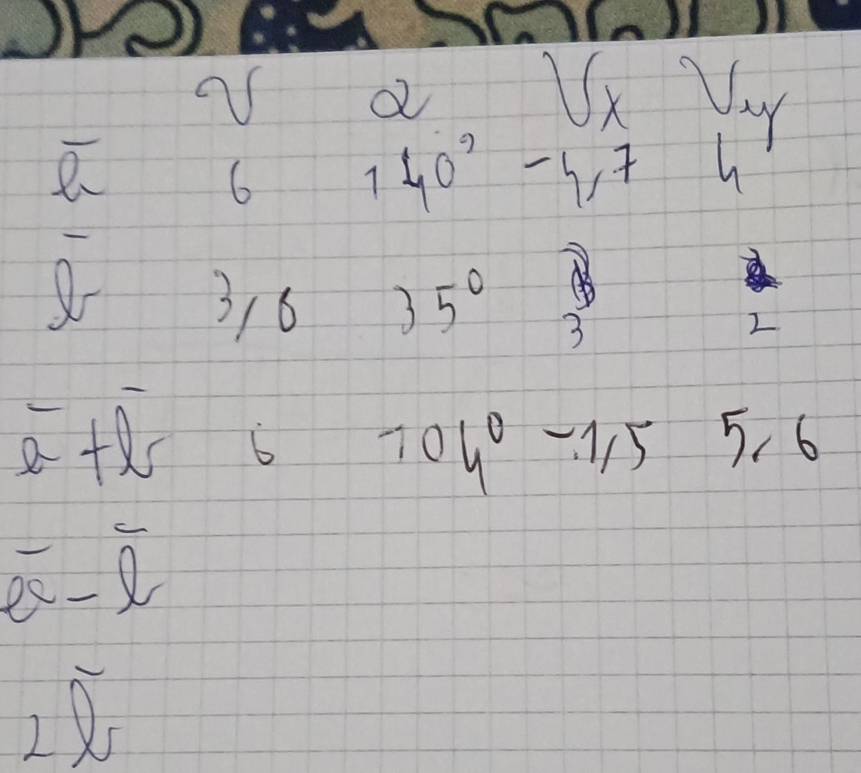 V α Vx Vy
a̅ 6 140° -4,7 4
b̅ 3,6 35° 3 2
a̅ + b̅ 6 104° -1,5 5,6
a̅ - b̅
2 b̅